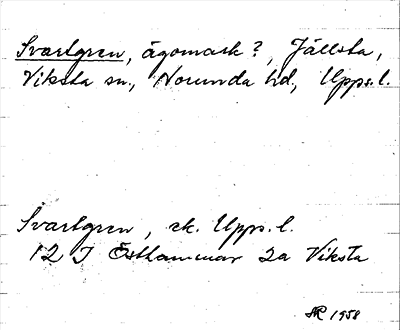 Svartgren, ägomark?, Jällsta,
Viksta sn., Norunda hd, Upps.l.
Svartgren, ek. Upps.l.
12 I Östhammar 2a Viksta
1958